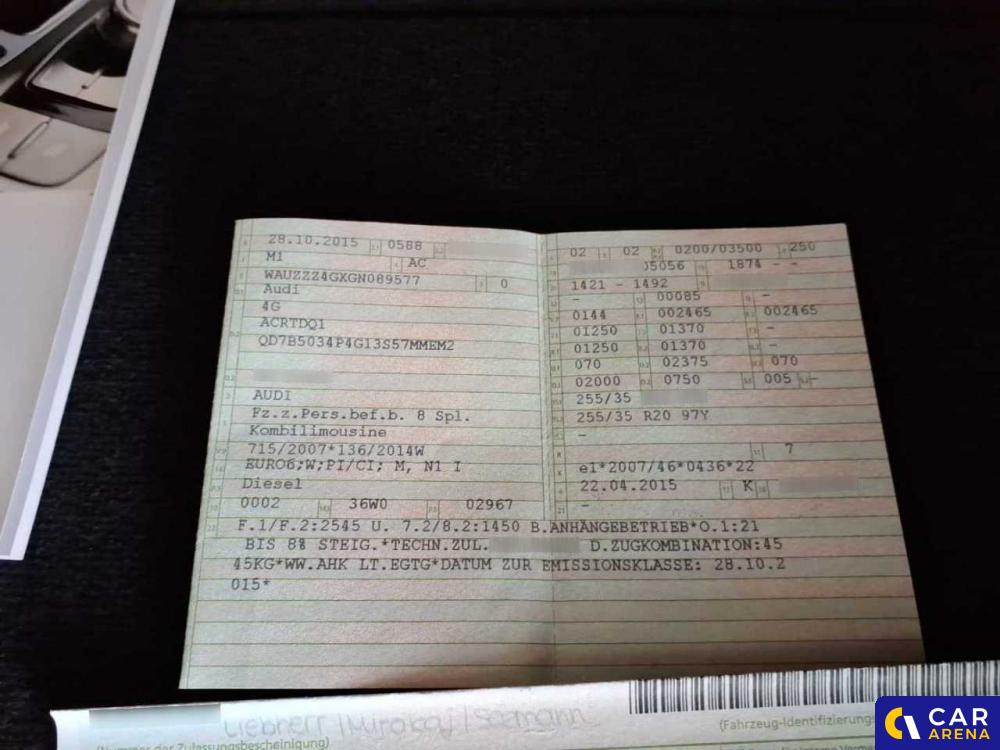 28.10.2015 0588
M1 AC
WAUZZZ4GXGN089577 0
Audi
4G
ACRTDQ1
QD7B5034P4G13S57MMEM2
AUDI
Fz.z.Pers.bef.b. 8 Spl.
Kombilimousine
715/2007*136/2014W
EURO6;W;PI/CI; M, N1 I
Diesel
0002 36W0 02967
02 02 0200/03500 250
J5056 1874 - -
1421 - 1492
- 00085 -
0144 002465 002465
01250 01370 -
01250 01370 -
070 02375 070
02000 0750 005 -
255/35
255/35 R20 97Y
-
7
e1*2007/46*0436*22
22.04.2015 K
-
F.1/F.2:2545 U. 7.2/8.2:1450 B.ANHÄNGEBETRIEB*O.1:21
BIS 8% STEIG.*TECHN.ZUL. D.ZUGKOMBINATION:45
45KG*WW.AHK LT.EGTG*DATUM ZUR EMISSIONSKLASSE: 28.10.2
015*
(Nummer der Zulassungsbescheinigung)
(Fahrzeug-Identifizierungs
CAR
ARENA